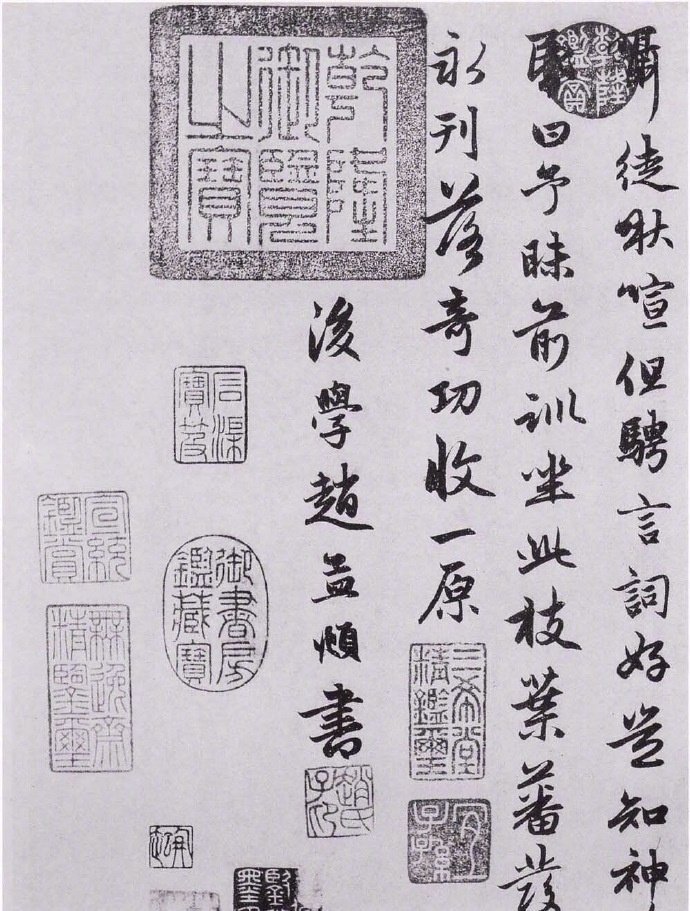 囁徒啾喧但騁言詞好豈知神
昏曰予昧前訓坐此枝葉蕃發
永刊落奇功收一原
後學趙孟頫書
乾隆鑑賞
乾隆御覽之寶
三希堂精鑑璽
宜子孫
趙氏子昂
石渠寶笈
御書房鑑藏寶
宣統鑑賞
無逸齋精鑒璽